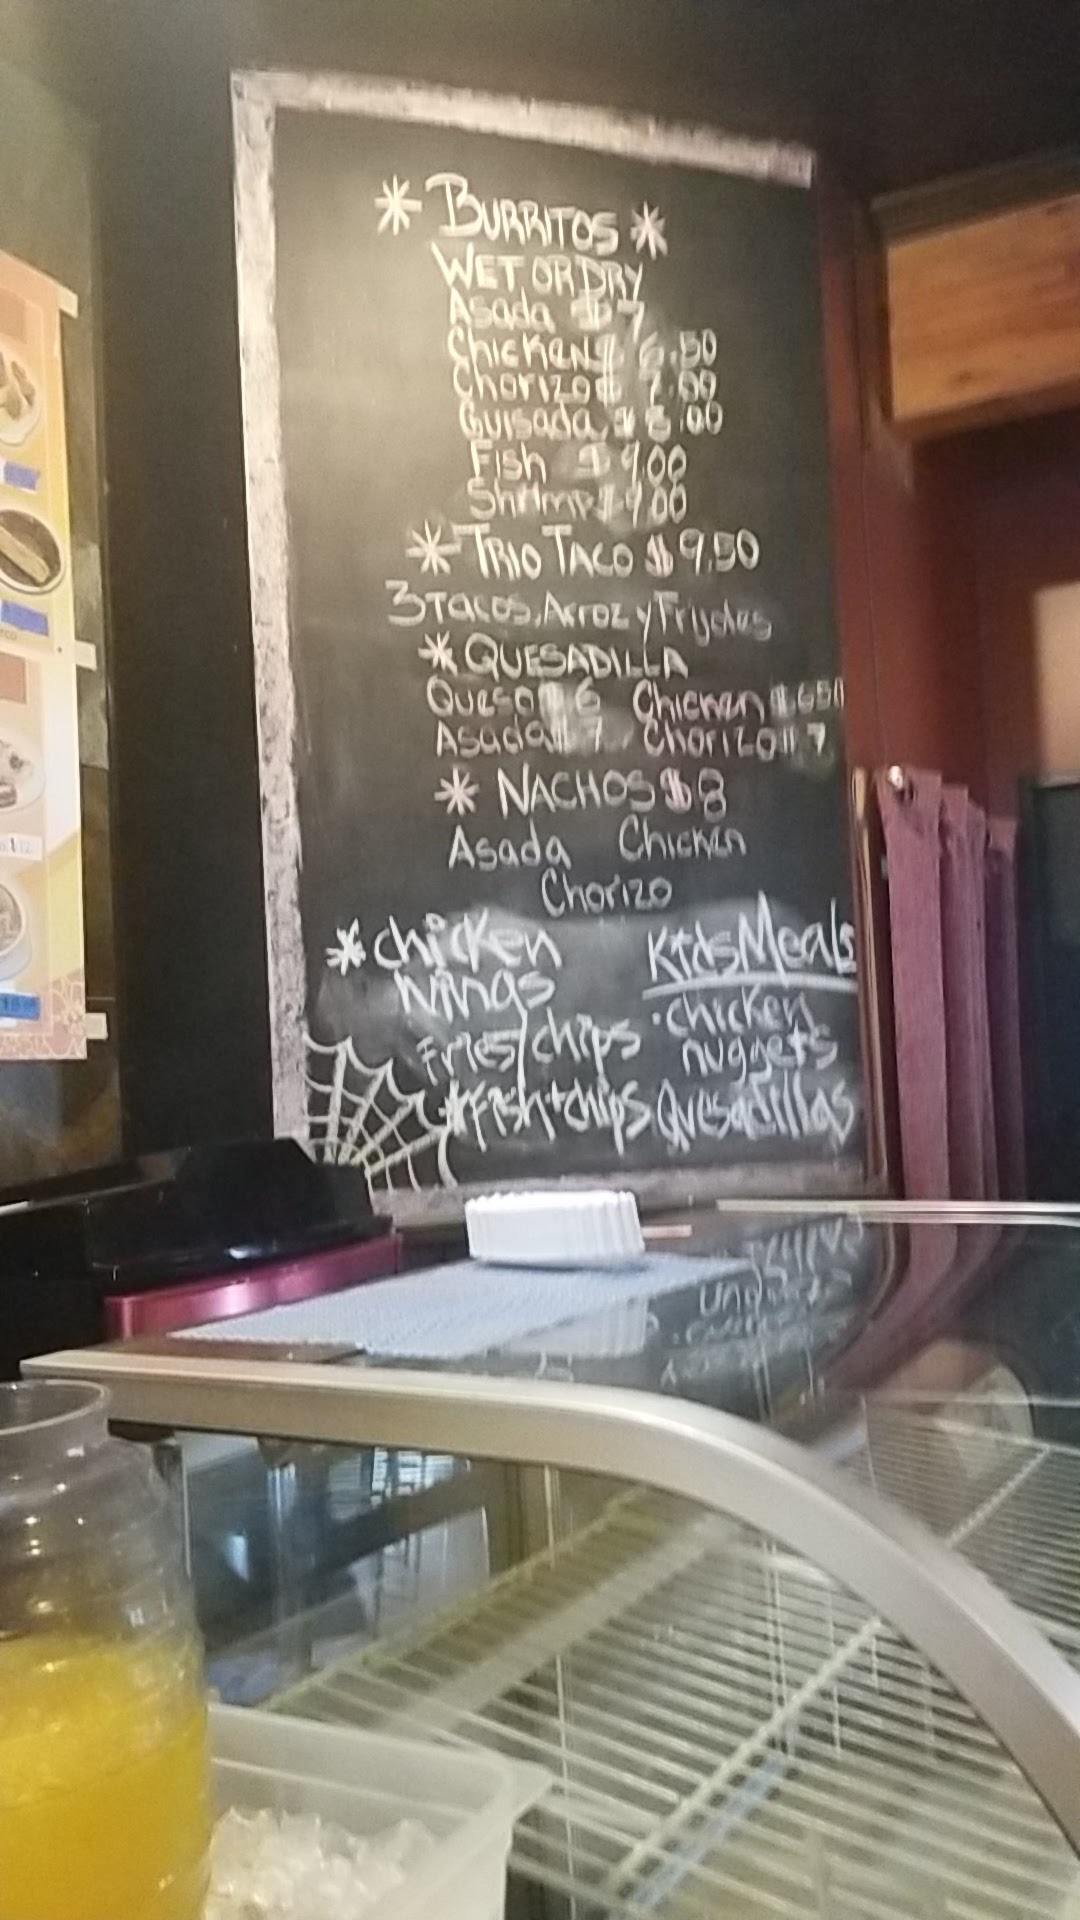 * BURRITOS *
WET OR DRY
Asada $ 7
Chicken $ 6.50
Chorizo $ 7.00
Guisada $ 8.00
Fish $ 9.00
Shrimp $ 9.00
* TRIO TACO $ 9.50
3 Tacos, Arroz y Frijoles
* QUESADILLA
Queso $ 6 Chicken $ 6.50
Asada $ 7 Chorizo $ 7
* NACHOS $ 8
Asada Chicken
Chorizo
* chicken
wings
Fries/chips
* Fish + chips
Kids Meals
• chicken
nuggets
• Quesadillas